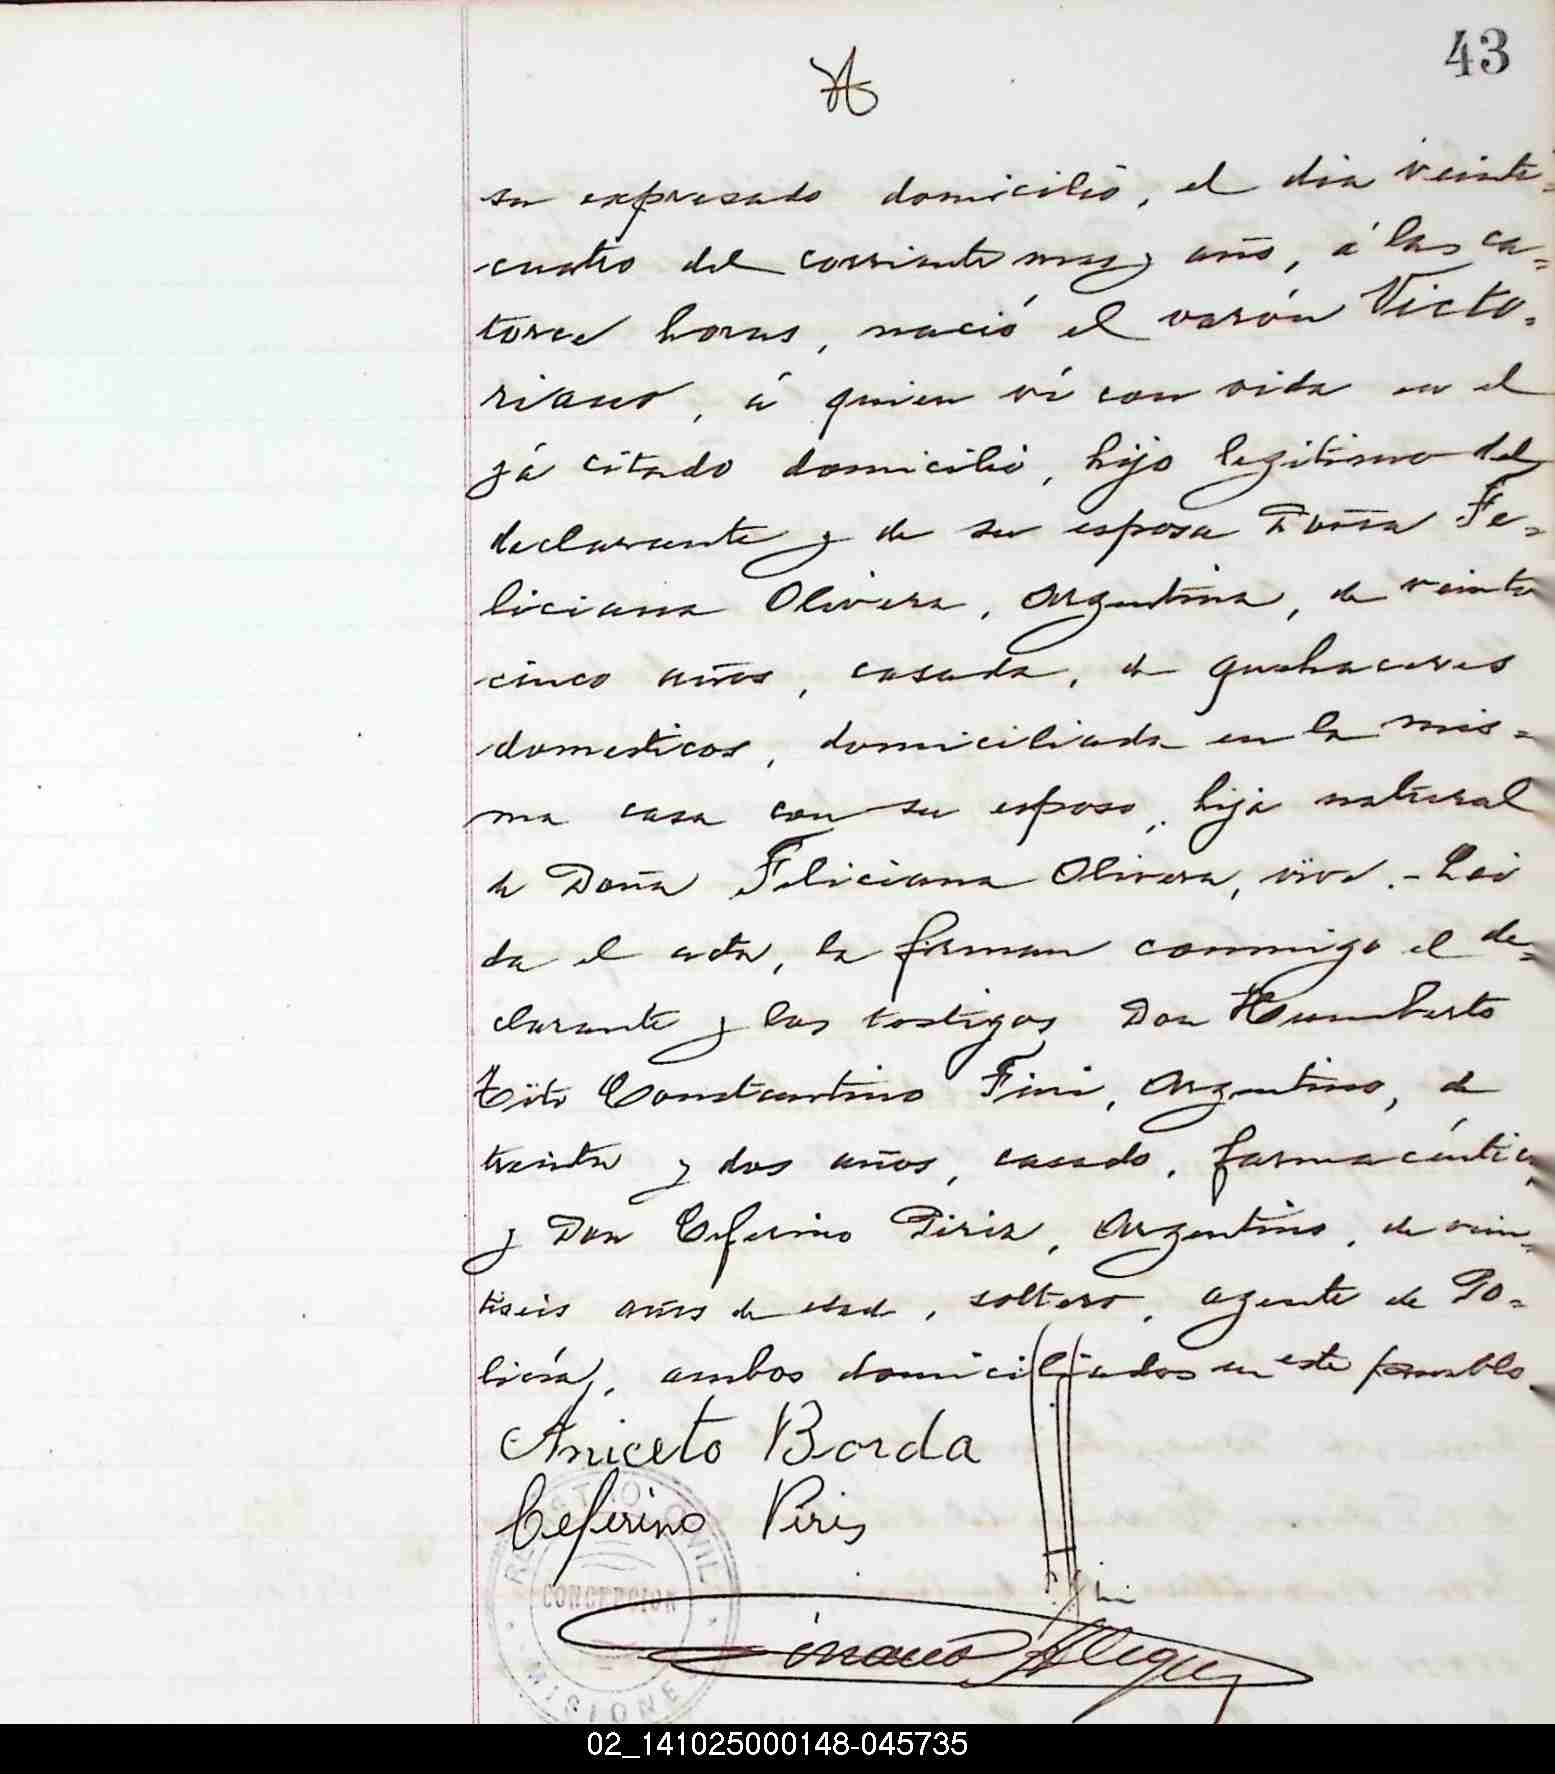 43
su expresado domicilio, el dia veinte=
cuatro del corriente mes y año, á las ca=
torce horas, nació el varón Victo=
riano, á quien ví con vida en el
yá citado domicilio, hijo legitimo del
declarante y de su esposa Doña Fe=
liciana Olivera, Argentina, de veinte
cinco años, casada, de quehaceres
domesticos, domiciliada en la mis=
ma casa con su esposo, hija natural
de Doña Feliciana Olivera, vive.- Lei
da el acta, la firman conmigo el de=
clarante y los testigos Don Humberto
Tito Constantino Fini, Argentino, de
treinta y dos años, casado, farmacéutico
y Don Ceferino Piris, Argentino, de vein=
tiseis años de edad, soltero, agente de Po=
licía, ambos domiciliados en este pueblo
Aniceto Borda
Ceferino Piris
REGISTRO CIVIL
CONCEPCION
MISIONES
Fini
02_141025000148-045735